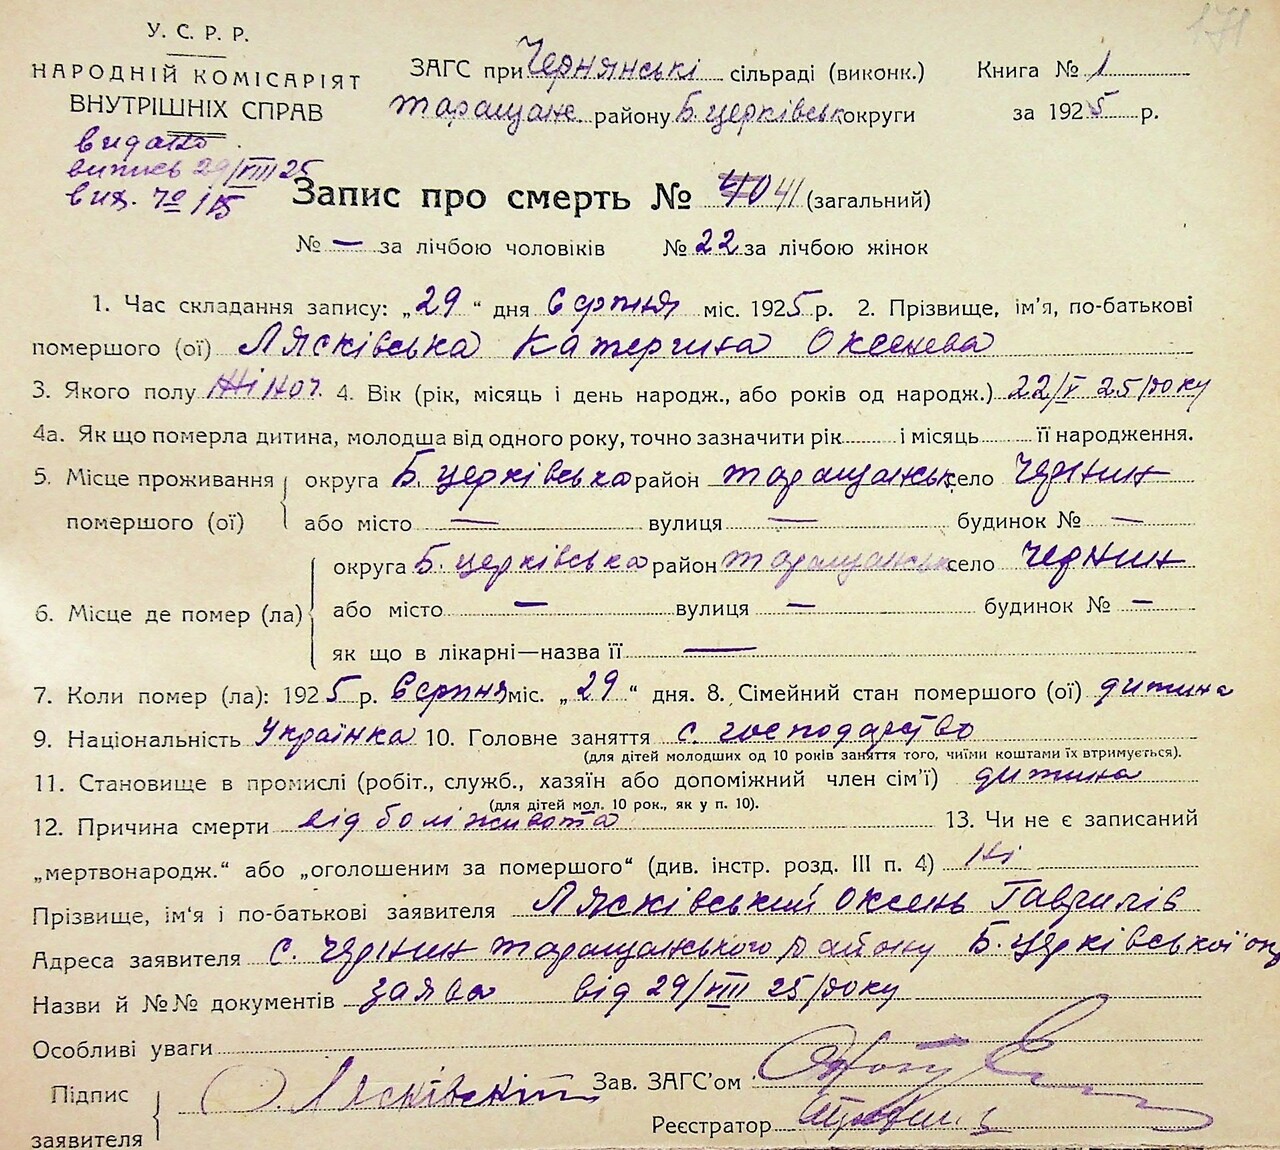 171
У. С. Р. Р.
НАРОДНІЙ КОМІСАРІЯТ
ВНУТРІШНІХ СПРАВ
видано
випись 29/VIII 25
вих. № 115
ЗАГС при Чернянські сільраді (виконк.)
Таращанс. району Б. церківськ округи
Книга № 1
за 1925 р.
Запис про смерть № 40 41 (загальний)
№ — за лічбою чоловіків № 22 за лічбою жінок
1. Час складання запису: „29“ дня Єерпня міс. 1925 р. 2. Прізвище, ім’я, по-батькові
помершого (ої) Лясківська Катерина Оксенева
3. Якого полу Жіноч. 4. Вік (рік, місяць і день народж., або років од народж.) 22/V 25/року
4а. Як що померла дитина, молодша від одного року, точно зазначити рік і місяць її народження.
5. Місце проживання помершого (ої) округа Б. церківська район таращанськ. село Чернин
або місто — вулиця — будинок № —
6. Місце де помер (ла) округа Б. церківська район таращанськ село Чернин
або місто — вулиця — будинок № —
як що в лікарні—назва її —
7. Коли помер (ла): 1925 р. Єерпня міс. „29“ дня. 8. Сімейний стан помершого (ої) дитина
9. Національність Українка 10. Головне заняття с. господарство
(для дітей молодших од 10 років заняття того, чиїми коштами їх втримується).
11. Становище в промислі (робіт., служб., хазяїн або допоміжний член сім’ї) дитина
(для дітей мол. 10 рок., як у п. 10).
12. Причина смерти від болі живота 13. Чи не є записаний
„мертвонародж.“ або „оголошеним за помершого“ (див. інстр. розд. III п. 4) Ні
Прізвище, ім’я і по-батькові заявителя Лясківський Оксень Гаврилів
Адреса заявителя с. Чернин таращанського району Б. церківської ок
Назви й №№ документів заява від 29/VIII 25/року
Особливі уваги
Підпис заявителя О. Лясківській Зав. ЗАГС’ом
Реєстратор